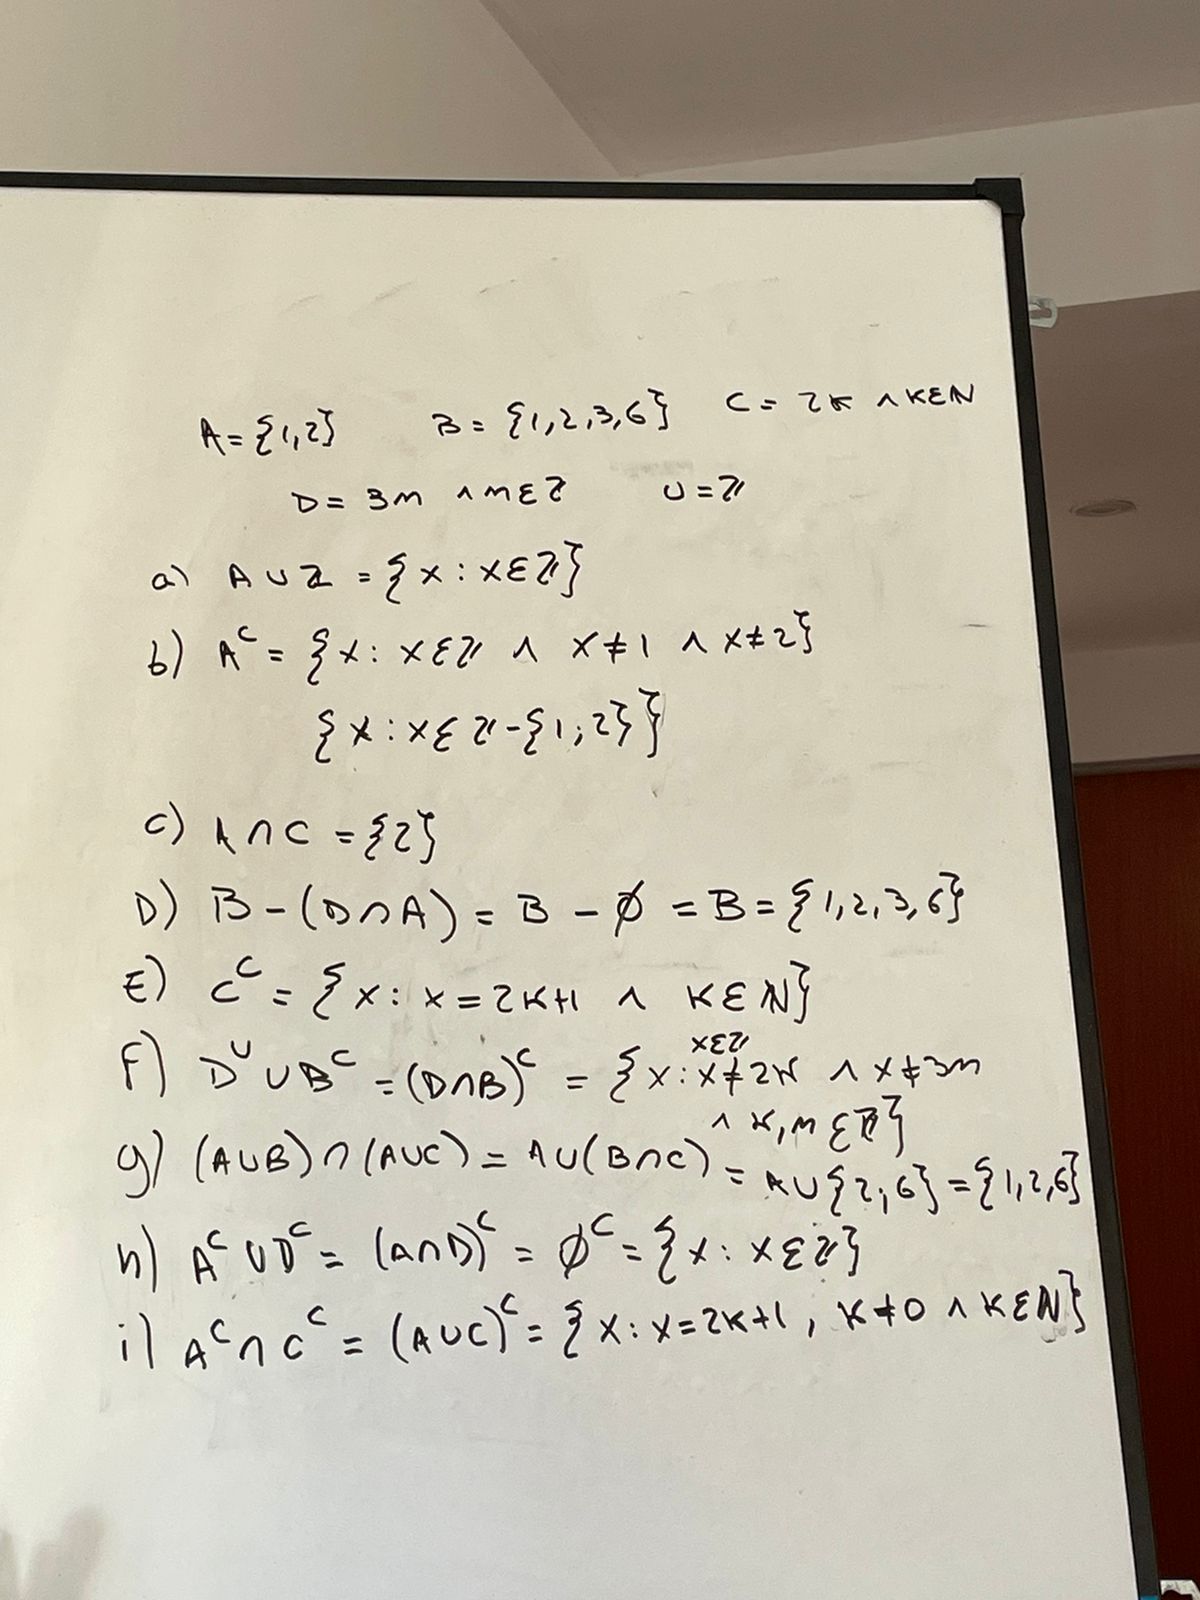 A = {1,2} B = {1,2,3,6} C = 2K ∧ K∈N
D = 3m ∧ m∈Z U = Z
a) A ∪ Z = {x : x∈Z}
b) A^C = {x : x∈Z ∧ x≠1 ∧ x≠2}
{x : x∈Z-{1;2}}
c) A ∩ C = {2}
D) B - (D∩A) = B - ∅ = B = {1,2,3,6}
E) C^C = {x : x = 2K+1 ∧ K∈N}
x∈Z
F) D^U ∪ B^C = (D∩B)^C = {x : x≠2K ∧ x≠3m
∧ K,m∈Z}
g) (A∪B) ∩ (A∪C) = A∪(B∩C) = A∪{2;6} = {1,2,6}
h) A^C ∪ D^C = (A∩D)^C = ∅^C = {x : x∈Z}
i) A^C ∩ C^C = (A∪C)^C = {x : x=2K+1, K≠0 ∧ K∈N}